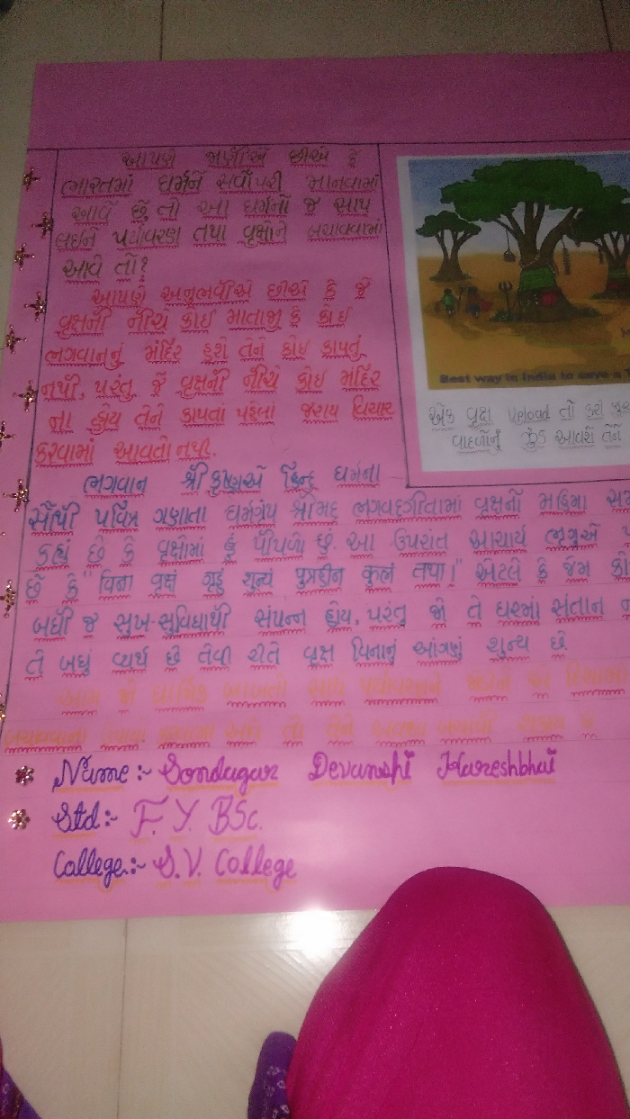 આપણે જાણીએ છીએ કે
ભારતમાં ધર્મને સર્વોપરી માનવામાં
આવે છે તો આ ધર્મનો જ સાથ
લઇને પર્યાવરણ તથા વૃક્ષોને બચાવવામાં
આવે તો?
આપણે અનુભવીએ છીએ કે જે
વૃક્ષની નીચે કોઇ માતાજી કે કોઇ
ભગવાનનું મંદિર હશે તેને કોઇ કાપતું
નથી, પરંતુ જે વૃક્ષની નીચે કોઇ મંદિર
ના હોય તેને કાપતા પહેલા જરાય વિચાર
કરવામાં આવતો નથી.
Best way in India to save a
એક વૃક્ષ Upload તો કરો
વાદળોનું ઝુંડ આવશે તેને
ભગવાન શ્રી કૃષ્ણએ હિન્દુ ધર્મના
સૌથી પવિત્ર ગણાતા ધર્મગ્રંથ શ્રીમદ્ ભગવદગીતામાં વૃક્ષનો મહિમા
કહ્યું છે કે વૃક્ષોમાં હું પીપળો છું. આ ઉપરાંત આચાર્ય ભૃગુએ
છે કે "વિના વૃક્ષં ગૃહં શૂન્યં પુત્રહીન કુલં તથા।" એટલે કે જેમ
બધી જ સુખ-સુવિધાથી સંપન્ન હોય, પરંતુ જો તે ઘરમાં સંતાન
તે બધું વ્યર્થ છે તેવી રીતે વૃક્ષ વિનાનું આંગણું શુન્ય છે.
આમ જો ધાર્મિક બાબતો સાથે
Name :- Sondagar Devanshi Hareshbhai
Std :- F. Y. BSc.
College :- S.V. College